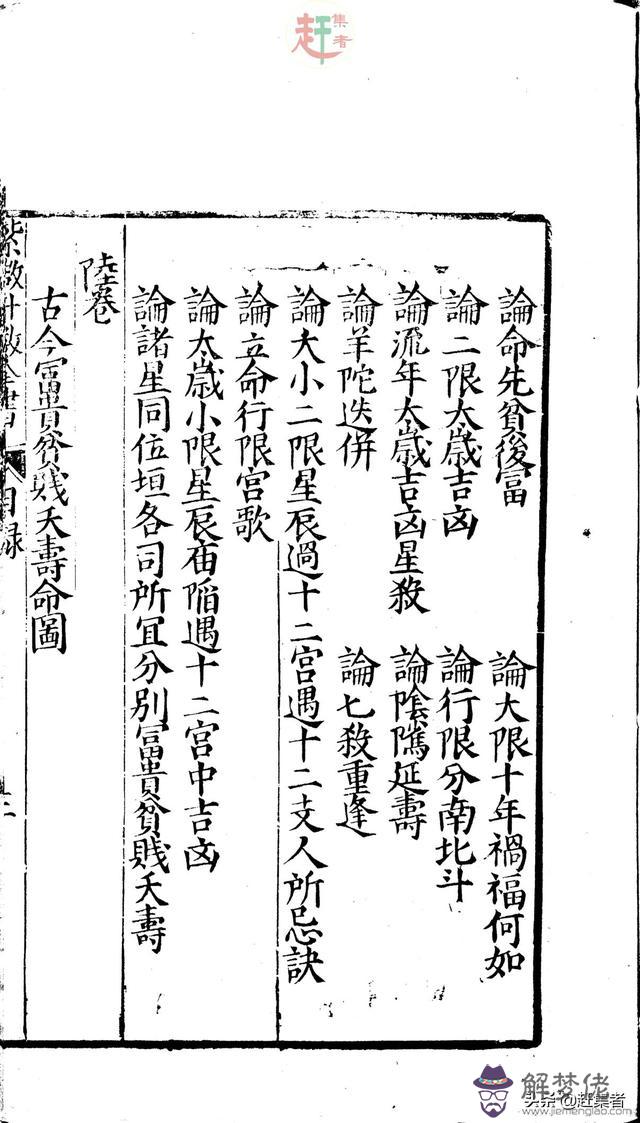 赶集者
論命先貧後富 論大限十年禍福何如
論二限太歲吉凶 論行限分南北斗
論流年太歲吉凶星殺 論陰騭延壽
論羊陀迭併 論七殺重逢
論大小二限星辰過十二宮遇十二支人所忌訣
論立命行限宮歌
論太歲小限星辰庙陷遇十二宮中吉凶
論諸星同位垣各司所宜分別冨貴貧賤夭壽
陸卷
古今冨貴貧賤夭壽命圖
目録
二
解梦佬
头条@赶集者
www.jiemenglao.com